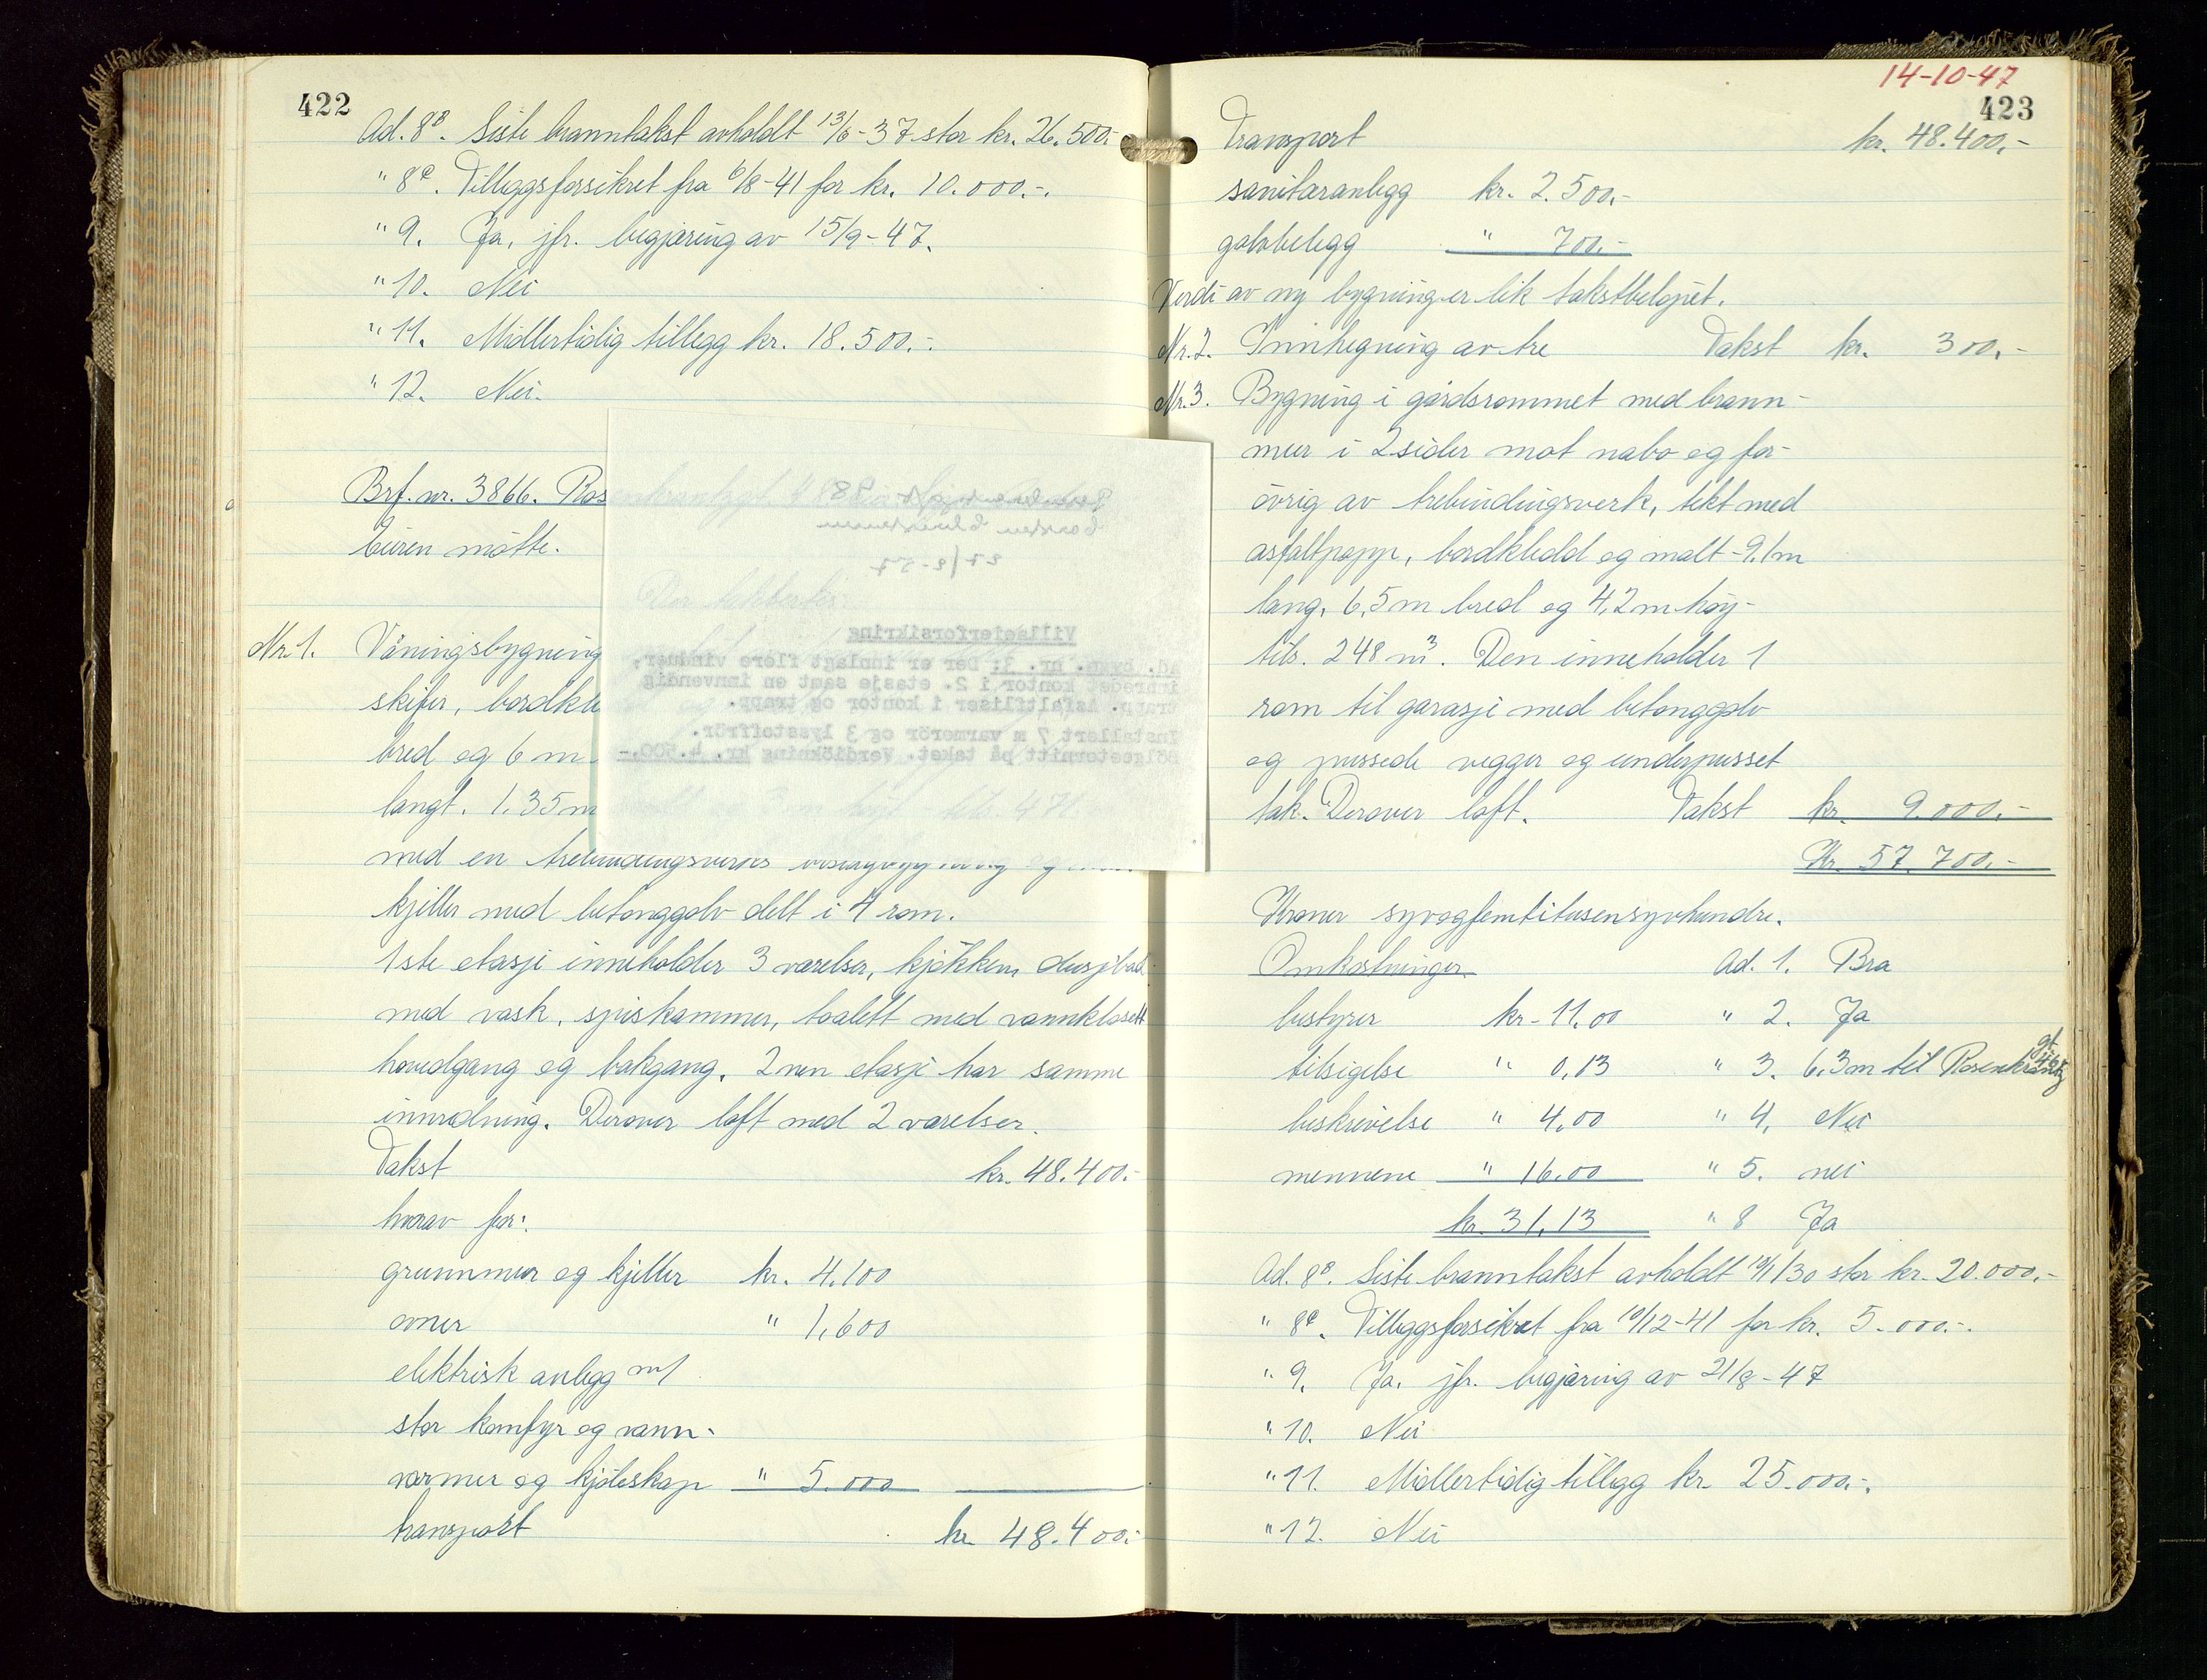 422
Ad. 8B. Siste branntakst avholdt 13/6-37 stor kr. 26.500.-
" 8C. Tilleggsforsikret fra 6/8-41 for kr. 10.000.-.
" 9. Ja, jfr. begjæring av 15/9-47.
" 10. Nei
" 11. Midlertidig tillegg kr. 18.500.-.
" 12. Nei.
Brf. nr. 3866. Rosenkrantzgt.
Eieren møtte.
Nr. 1. Våningsbygning
skifer, bordkle
bred og 6 m
langt. 1,35 m
med en trebindingsverks
kjeller med betonggolv delt i 4 rom.
1ste etasje inneholder 3 værelser, kjøkken, dusjbad
med vask, spiskammer, toalett med vannklosett
hovedgang og bakgang. 2nen etasje har samme
innredning. Derover loft med 2 værelser.
Takst kr. 48.400.-
hvorav for:
grunnmur og kjeller kr. 4.100
ovner " 1.600
elektrisk anlegg m/
stor komfyr og vann-
varmer og kjøleskap " 5.000
transport kr. 48.400.-
Villaeierforsikring
ad. bygn. nr. 3: Der er innlagt flere vinduer,
innredet kontor i 2. etasje samt en innvendig
trapp. Asfaltfliser i kontor og trapp.
Installert 7 m varmerör og 3 lysstoffrör.
Bölgeeternitt på taket. Verdiökning kr. 4.500,-
14-10-47
423
Transport kr. 48.400,-
sanitæranlegg kr. 2.500,-
golvbelegg " 700,-
Verdi av ny bygning er lik takstbeløpet.
Nr. 2. Innhegning av tre Takst kr. 300,-
Nr. 3. Bygning i gårdsrommet med brann-
mur i 2 sider mot nabo og for-
øvrig av trebindingsverk, tekt med
asfaltpapp, bordkledd og malt - 9,1 m
lang, 6,5 m bred og 4,2 m høy -
tils. 248 m³. Den inneholder 1
rom til garasje med betonggolv
og pussede vegger og underpusset
tak. Derover loft. Takst kr. 9.000,-
Kr. 57.700,-
Kroner syvogfemtitusensyvhundre.
Omkostninger Ad. 1. Bra
bestyrer kr. 11.00 " 2. Ja
tilsigelse " 0,13 " 3. 6,3m til Rosenkrantz gt. 46
beskrivelse " 4,00 " 4. Nei
mennene " 16.00 " 5. nei
kr. 31,13 " 8 Ja
Ad. 8B. Siste branntakst avholdt /30 stor kr. 20.000,-
" 8C. Tilleggsforsikret fra 10/12-41 for kr. 5.000.-.
" 9. Ja. jfr. begjæring av 21/8-47
" 10. Nei
" 11. Midlertidig tillegg kr. 25.000.-.
" 12. Nei